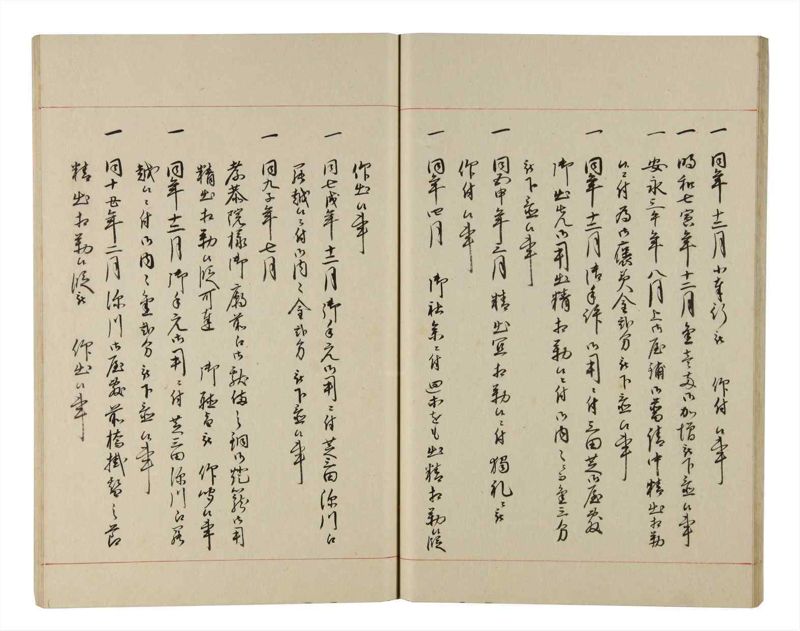 一 同年十二月小奉行被 仰付候事
一 明和七寅年十二月金壱両御加増被下置候事
一 安永三午年八月上御屋鋪御普請中精出相勤
候ニ付為御褒美金弐分被下置候事
一 同年十二月 御用ニ付三田芝御屋敷
御出先御用出精相勤候ニ付御内々金三分
被下置候事
一 同五申年三月精出宜相勤候ニ付独礼被
仰付候事
一 同年四月 御社参ニ付 出精相勤候段
仰出候事
一 同七戌年十二月御手元御用ニ付芝三田深川江
罷越候ニ付御内々金弐分被下置候事
一 同九子年七月
孝恭院様御廟前江御献備之銅御燈籠御用
精出相勤候段可奉 御聴旨被 仰出候事
一 同年十二月御手元御用ニ付芝三田深川江罷
越候ニ付御内々金弐分被下置候事
一 同十丑年二月深川御屋敷前橋掛替之節
精出相勤候段被 仰出候事